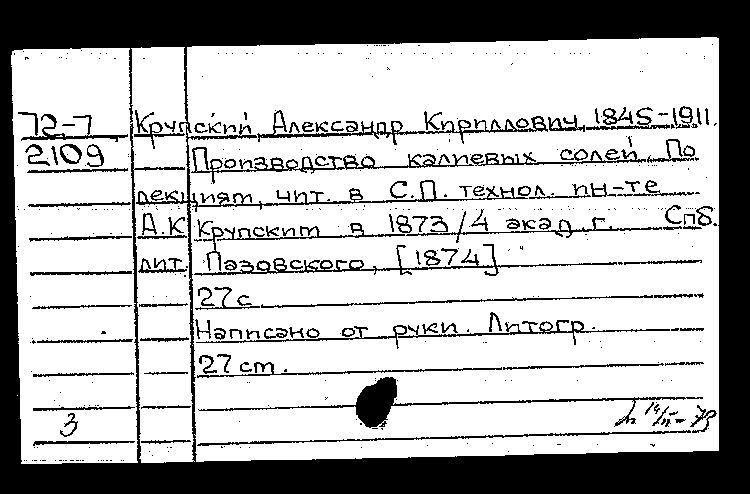 72-7 Крупский, Александр Кириллович, 1845-1911.
2109 Производство калиевых солей. По
лекциям, чит. в С.П. технол. ин-те
А.К. Крупским в 1873/4 акад. г. Спб.
лит. Пазовского, [1874]
27 с.
Написано от руки. Литогр.
27 см.
3